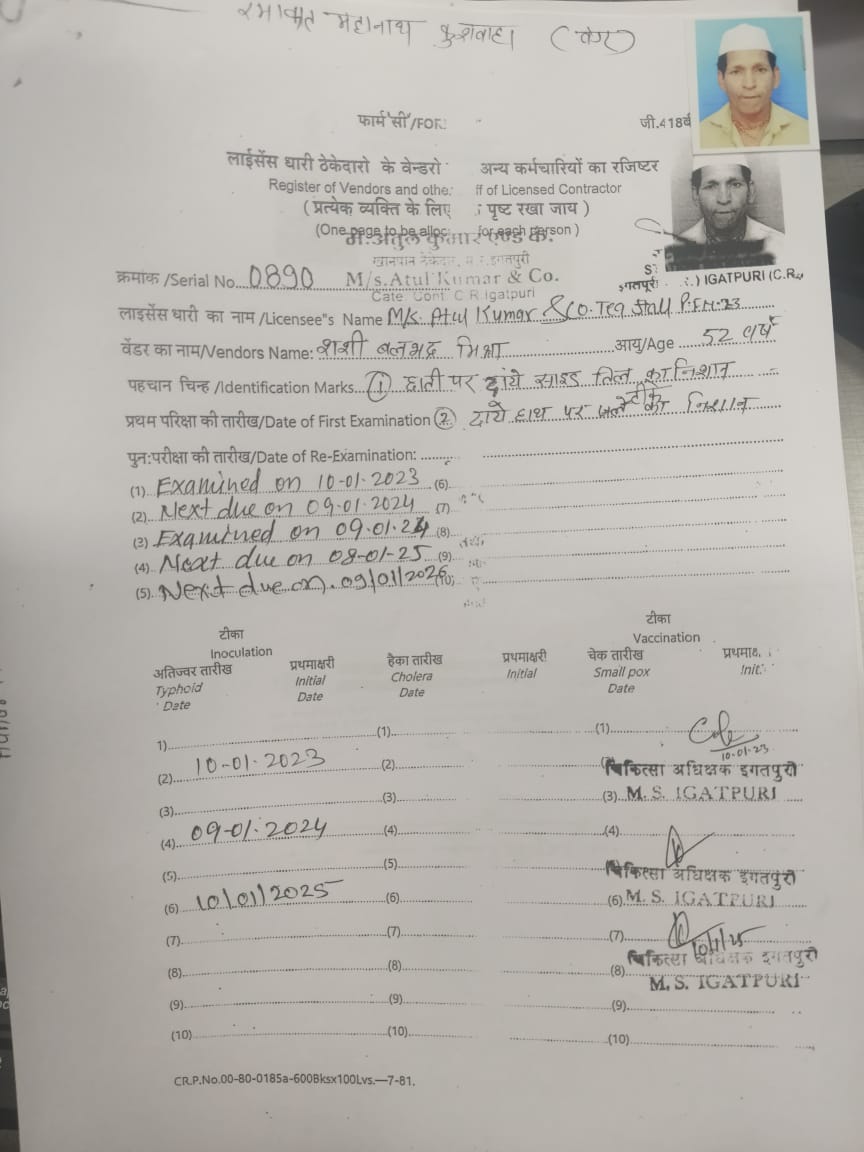 रमाकांत महानाथ कुशवाहा (वेंडर)
फार्म 'सी'/FOR
जी.418
लाईसेंस धारी ठेकेदारो के वेन्डरो अन्य कर्मचारियों का रजिष्टर
Register of Vendors and othe ff of Licensed Contractor
( प्रत्येक व्यक्ति के लिए पृष्ट रखा जाय )
(One page to be alloc for each person )
मे.अतुल कुमार एण्ड कं.
खानपान ठेकेदार, म.रे.इगतपुरी
क्रमाक /Serial No. 0890 M/s.Atul Kumar & Co.
Cate. Cont. C.R.Igatpuri
इगतपूरी ) IGATPURI (C.R.
लाईसेंस धारी का नाम /Licensee"s Name M/s. Atul Kumar & Co. Tea Stall P.F.N.23
वेंडर का नाम/Vendors Name: शशी बलभद्र मिश्रा आयु/Age 52 वर्ष
पहचान चिन्ह /Identification Marks. (1) छाती पर दांये साइड तिल का निशान
प्रथम परिक्षा की तारीख/Date of First Examination (2) दाये हाथ पर जले का निशान
पुन:परीक्षा की तारीख/Date of Re-Examination:
(1) Examined on 10-01-2023 (6)
(2) Next due on 09.01.2024 (7)
(3) Examined on 09.01.24 (8)
(4) Next due on 08-01-25 (9)
(5) Next due on. 09/01/2026 (10)
टीका
Inoculation
टीका
Vaccination
अतिज्वर तारीख प्रथमाक्षरी हैका तारीख प्रथमाक्षरी चेक तारीख प्रथमाक्ष
Typhoid Initial Cholera Initial Small pox Init
Date Date Date Date
1) (1) (1)
10-01-23
(2) 10-01-2023 (2)
चिकित्सा अधिक्षक इगतपुरी
(3) (3) (3) M. S. IGATPURI
(4) 09-01-2024 (4) (4)
(5) (5)
चिकित्सा अधिक्षक इगतपुरी
(6) 10/01/2025 (6) (6) M. S. IGATPURI
(7) (7) (7) 10/1/25
चिकित्सा अधिक्षक इगतपुरी
(8) (8) (8) M. S. IGATPURI
(9) (9) (9)
(10) (10) (10)
CR.P.No.00-80-0185a-600Bksx100Lvs.—7-81.